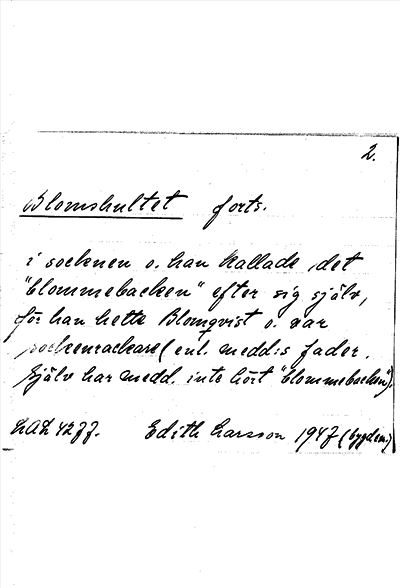 2.
Blomshultet forts.
i socknen o. han kallade det
"blommebacken" efter sig själv,
för han hette Blomqvist o. var
sockenrackare (enl. medd:s fader.
Själv har medd. inte hört "blommebacken").
LAL 4277. Edith Larsson 1947 (bygdem.)